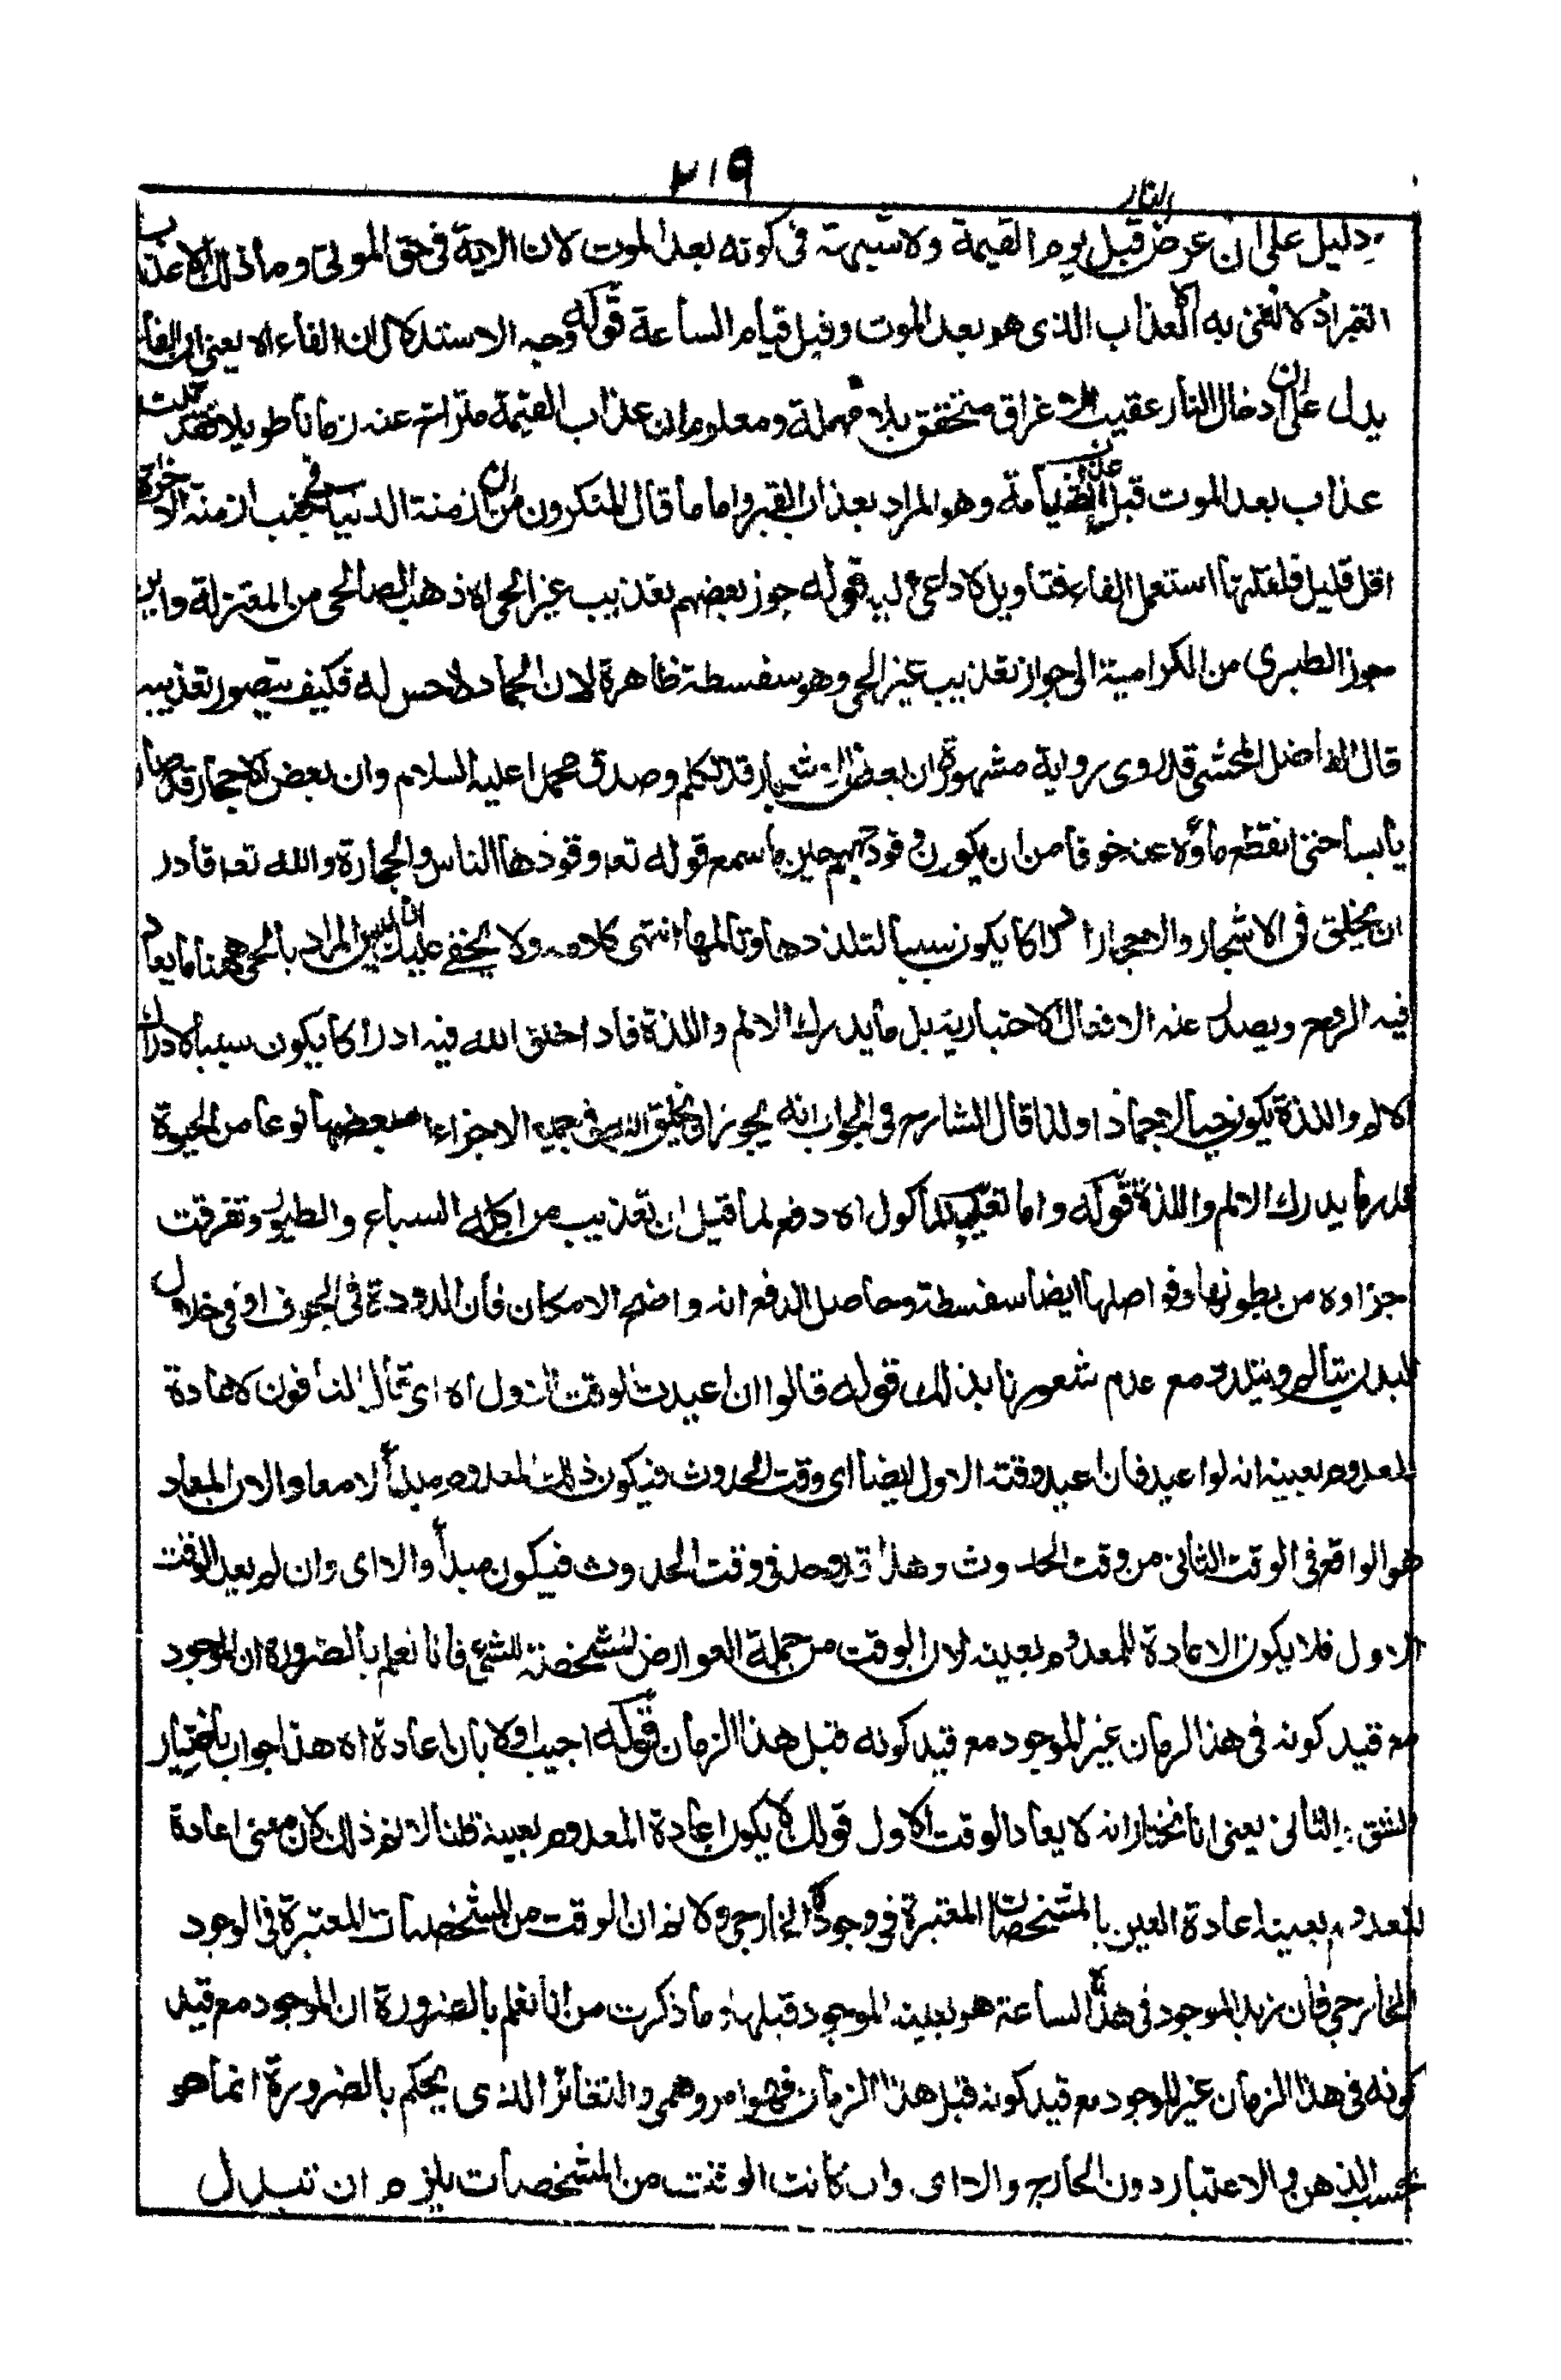 ٢١٩
النار
دليل على ان عرض قبل يوم القيمة ولا شبهة فى كونه بعد الموت لان الاية فى حق الموتى وما ذلك الا عذاب
القبر اذ لا نعنى به الا العذاب الذى هو بعد الموت وقبل قيام الساعة قوله وجه الاستدلال ان الفاء اه يعنى ان الفاء
يدل على ان ادخال النار عقيب الاغراق متحقق بلا مهملة ومعلوم ان عذاب القيمة متراخ عنه زمانا طويلا فقد ثبت
عذاب بعد الموت قبل القيامة وهو المراد بعذاب القبر واما ما قال المنكرون من ان ازمنة الدنيا فى جنب ازمنة الاخرة
اقل قليل فلقلتها استعمل الفاء فتاويل لا داعى اليه قوله جوز بعضهم تعذيب غير الحى اه ذهب الصالحى من المعتزلة وابن
جوز الطبرى من الكرامية الى جواز تعذيب غير الحى وهو سفسطة ظاهرة لان الجماد لا حس له فكيف يتصور تعذيبه
قال الفاضل المحشى قد روى رواية مشهورة ان بعض الاشجار قد تكلم وصدق محمدا عليه السلام وان بعض الاحجار قد صار
يابسا حتى انقطع ماؤه عنه خوفا من ان يكون وقود جهنم حين ما سمع قوله تعه وقودها الناس والحجارة والله تعه قادر
ان يخلق فى الاشجار والاحجار ادراكا يكون سببا لتلذذها وتالمها انتهى كلامه ولا يخفى عليك ان ليس المراد بالحى ههنا ما يعاد
فيه الروح ويصدر عنه الافعال الاختيارية بل ما يدرك الالم واللذة فاذا خلق الله فيه ادراكا يكون سببا لادراك
الالم واللذة يكون حيا لا جمادا ولذا قال الشارح فى الجواب انه يجوز ان يخلق الله فى جميع الاجزاء او بعضها نوعا من الحيوة
قدر ما يدرك الالم واللذة قوله واما تعذيب المأكول اه دفع لما قيل ان تعذيب من اكله السباع والطيور وتفرقت
اجزاوه من بطونها وفواصلها ايضا سفسطة وحاصل الدفع انه واضح الامكان فان الدودة فى الجوف او فى خلال
البدن يتألم ويتلذذ مع عدم شعورنا بذلك قوله قالوا ان اعيد الوقت الاول اه اى قال النافون لاعادة
المعدوم بعينه انه لو اعيد فان اعيد وقته الاول ايضا اى وقت الحدوث فيكون ذلك المعدوم مبدأ لا معادا لان المعاد
هو الواقع فى الوقت الثانى من وقت الحدوث وهذا قد وجد فى وقت الحدوث فيكون مبدأ والا اى وان لم يعد الوقت
الاول فلا يكون الاعادة للمعدوم بعينه لان الوقت من جملة العوارض المشخصة للشئ فانا نعلم بالضرورة ان الموجود
مع قيد كونه فى هذا الزمان غير الموجود مع قيد كونه قبل هذا الزمان قوله اجيب اولا بان اعادة اه هذا جواب باختيار
الشق الثانى يعنى انا نختار انه لا يعاد الوقت الاول قولك لا يكون اعادة المعدوم بعينه قلنا لا نم ذلك لان معنى اعادة
المعدوم بعينه اعادة العين بالمشخصات المعتبرة فى وجوده الخارجى ولا نم ان الوقت من المشخصات المعتبرة فى الوجود
الخارجى فان زيد الموجود فى هذه الساعة هو بعينه الموجود قبلها وما ذكرت من انا نعلم بالضرورة ان الموجود مع قيد
كونه فى هذا الزمان غير الموجود مع قيد كونه قبل هذا الزمان فهو امر وهمى والتغائر الذى يحكم بالضرورة انما هو
بحسب الذهن والاعتبار دون الخارج والا اى وان كانت الوقت من المشخصات يلزم ان تبدل